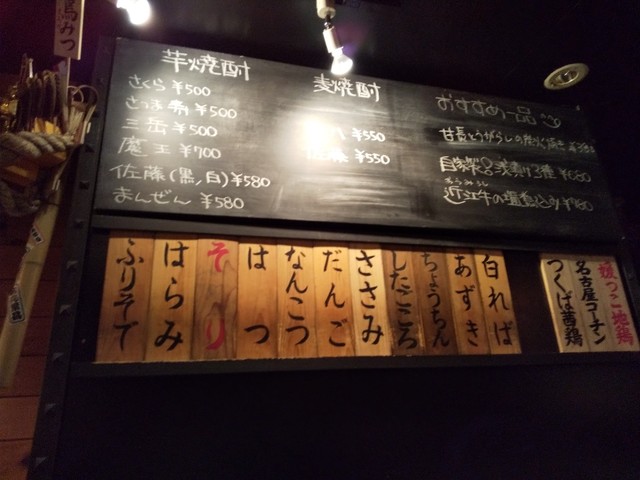 鳥みつ
芋焼酎
さくら ¥500
さつま ¥500
三岳 ¥500
魔王 ¥700
佐藤(黒,白) ¥580
まんぜん ¥580
麦焼酎
八 ¥550
佐藤 ¥550
おすすめ一品
甘長とうがらしの
自家製
浅漬け3種
近江牛の塩煮込み
白れば
あずき
ちょうちん
したごころ
ささみ
だんご
なんこつ
はつ
そり
はらみ
ふりそで
地鶏
名古屋コーチン
つくば茜鶏